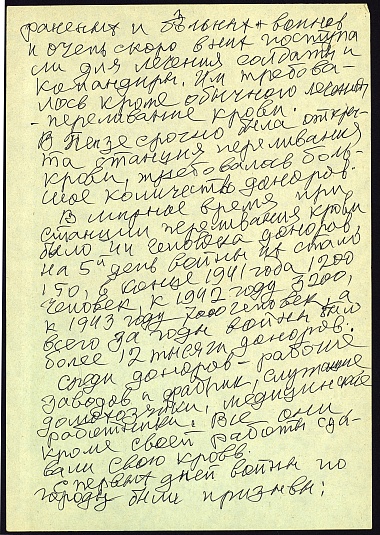 3
раненых и больных воинов
и очень скоро в них поступа
ли для лечения солдаты и
командиры. Им требова-
лось кроме обычного лечения
- переливание крови.
В Пензе срочно была откры-
та станция переливания
крови, требовалось боль-
шое количество доноров.
В мирное время при
станции переливания крови
было человека доноров,
на 5й день войны их стало
150, в конце 1941 года 1200
человек, к 1942 году 3200,
к 1943 году 7000 человек, а
всего за годы войны было
более 12 тысяч доноров.
Среди доноров - рабочие
заводов и фабрик, служащие,
домохозяйки, медицинские
работники. Все они
кроме своей работы сда-
вали свою кровь.
С первых дней войны по
городу были призывы: